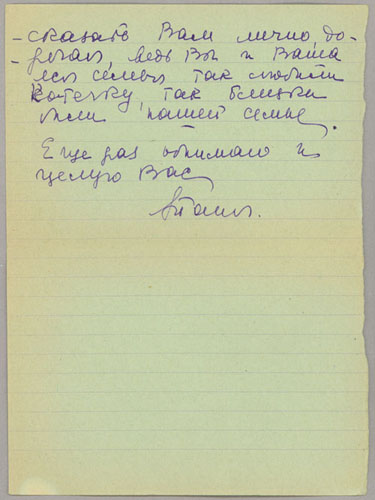 - сказать Вам лично, до-
- рогая, ведь Вы и Ваша
вся семья так любили
Котечку, так близки
были нашей семье.
Еще раз обнимаю и
целую Вас